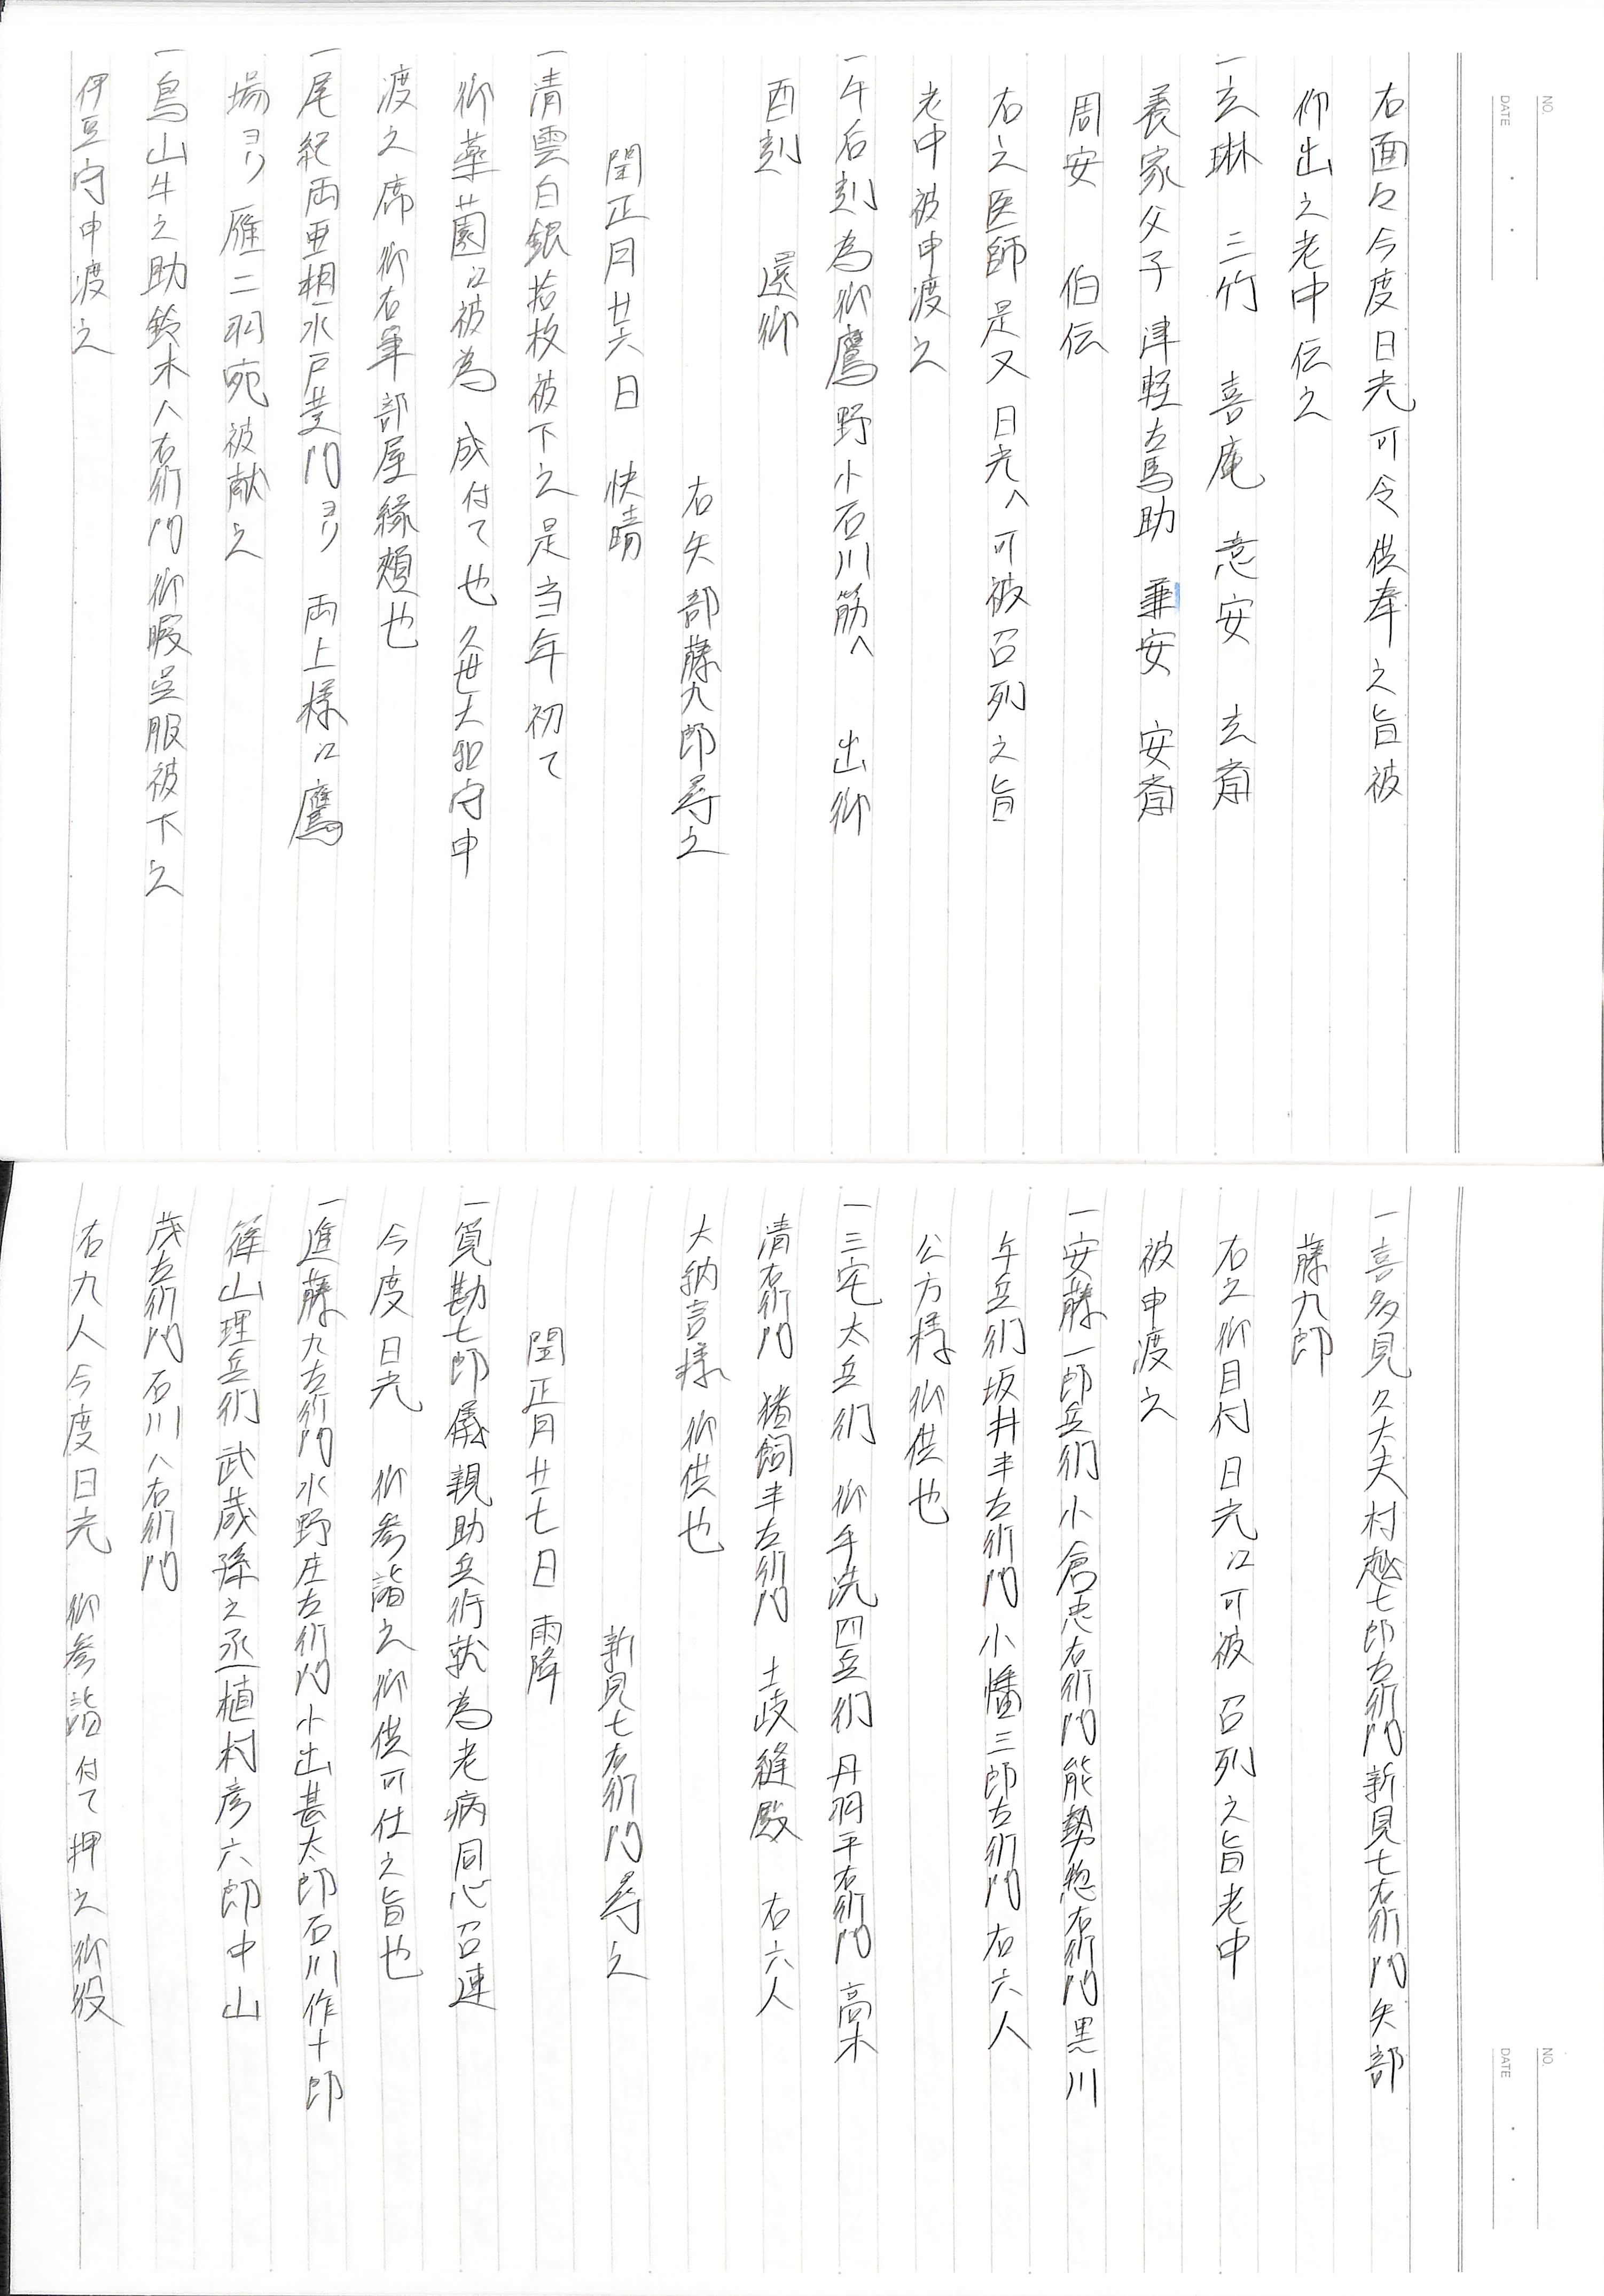 NO.
DATE
右面々今度日光可令供奉之旨被
仰出之老中伝之
一玄琳 三竹 喜庵 意安 玄斎
養家父子 津軽左馬助 兼安 安斎
周安 伯伝
右之医師是又日光へ可被召列之旨
老中被申渡之
一午后刻為御鷹野小石川筋へ 出御
酉刻 還御
右矢部藤九郎尋之
閏正月廿六日 快晴
一清雲白銀拾枚被下之是当年初て
御薬園江被為 成付て也久世大和守申
渡之席御右筆部屋縁頬也
一尾紀両亜相水戸黄門ヨリ 両上様江鷹
場ヨリ雁二羽宛被献之
一鳥山牛之助鈴木八右衛門御暇呉服被下之
伊豆守申渡之
NO.
DATE
一喜多見久太夫村越七郎左衛門新見七右衛門矢部
藤九郎
右之御目付日光江可被 召列之旨老中
被申渡之
一安藤一郎兵衛小倉忠右衛門能勢惣右衛門黒川
与兵衛坂井半左衛門小幡三郎左衛門右六人
公方様御供也
一三宅太兵衛 御手洗四兵衛丹羽平右衛門高木
清右衛門 猪飼半左衛門 土岐縫殿 右六人
大納言様御供也
新見七右衛門尋之
閏正月廿七日 雨降
一筧勘七郎儀親助兵衛就為老病同心召連
今度日光 御参詣之御供可仕之旨也
一進藤九左衛門水野庄左衛門小出甚太郎石川作十郎
篠山理兵衛武蔵孫之丞植村彦六郎中山
茂左衛門石川八右衛門
右九人今度日光 御参詣付て押之御役